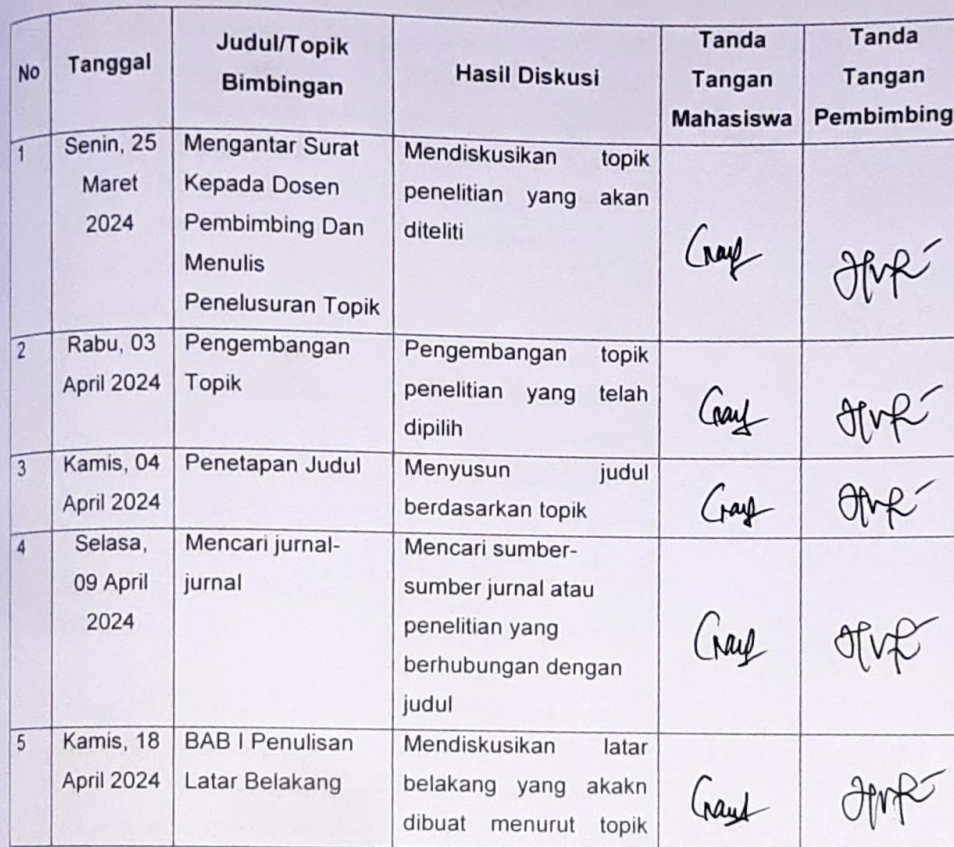 No
Tanggal
Judul/Topik
Bimbingan
Hasil Diskusi
Tanda
Tangan
Mahasiswa
Tanda
Tangan
Pembimbing
1
Senin, 25
Maret
2024
Mengantar Surat
Kepada Dosen
Pembimbing Dan
Menulis
Penelusuran Topik
Mendiskusikan topik
penelitian yang akan
diteliti
2
Rabu, 03
April 2024
Pengembangan
Topik
Pengembangan topik
penelitian yang telah
dipilih
3
Kamis, 04
April 2024
Penetapan Judul
Menyusun judul
berdasarkan topik
4
Selasa,
09 April
2024
Mencari jurnal-
jurnal
Mencari sumber-
sumber jurnal atau
penelitian yang
berhubungan dengan
judul
5
Kamis, 18
April 2024
BAB I Penulisan
Latar Belakang
Mendiskusikan latar
belakang yang akakn
dibuat menurut topik